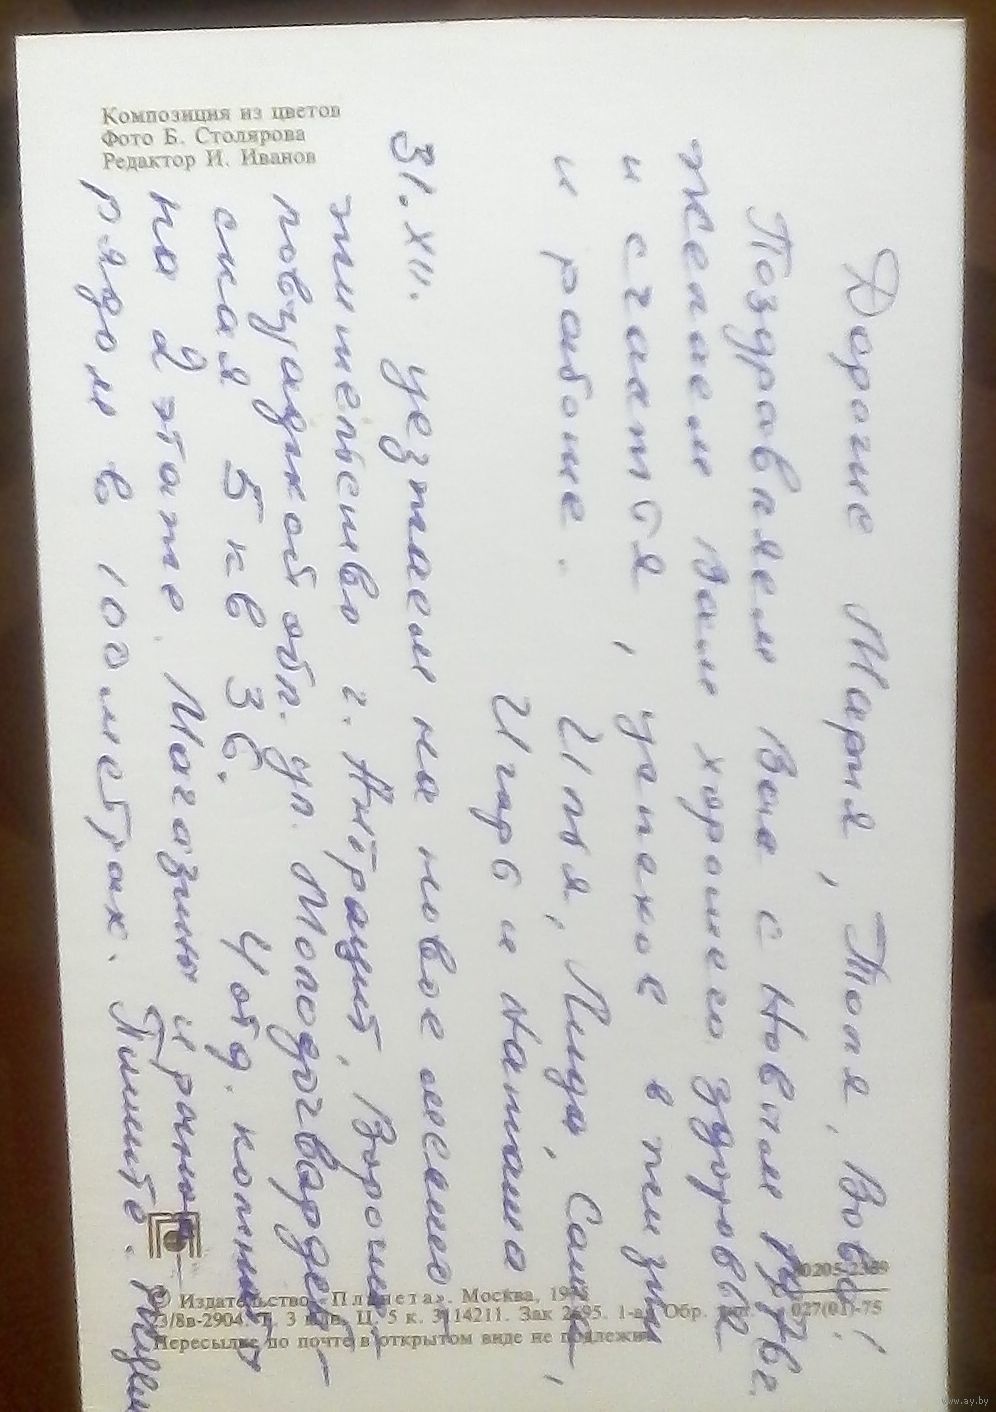 Композиция из цветов
Фото Б. Столярова
Редактор И. Иванов
Дорогие Мария, Толя, Вова!
Поздравляем Вас с Новым 1976г.
Желаем Вам хорошего здоровья
и счастья, успехов в жизни
и работе. Илья, Лида, Саша,
Игорь и Наташа
31.XII. уезжаем на новое место
жительство г. Антрацит, Ворошил
овградской обл. ул. Молодогвардей
ская 5 кв 36. 4 отд. комнат
на 2 этаже. Магазины и рынок
рядом в 100 метрах. Пишите.
20205-2389
© Издательство «Планета». Москва, 1975
23/8в-2904. Ц. 5 к. 3114211. Зак 2695. 1-я Обр. 027(01)-75
Пересылке по почте в открытом виде не подлежит
www.ay.by